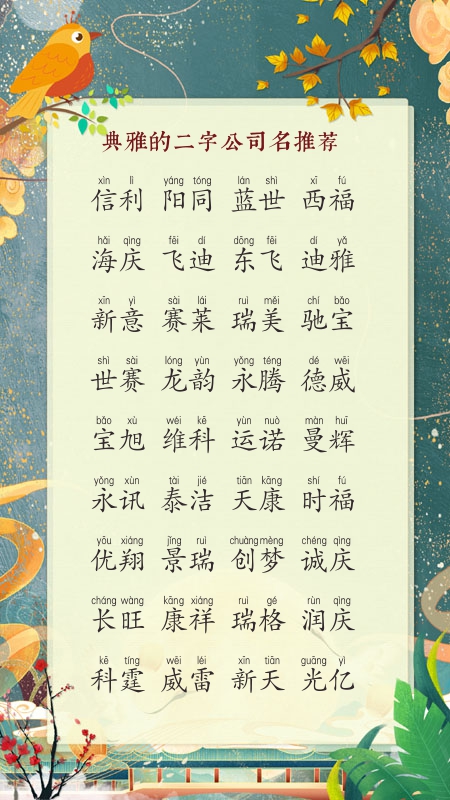 典雅的二字公司名推荐
xìn lì yáng tóng lán shì xī fú
信利 阳同 蓝世 西福
hǎi qìng fēi dí dōng fēi dí yǎ
海庆 飞迪 东飞 迪雅
xīn yì sài lái ruì měi chí bǎo
新意 赛莱 瑞美 驰宝
shì sài lóng yùn yǒng téng dé wēi
世赛 龙韵 永腾 德威
bǎo xù wéi kē yùn nuò màn huī
宝旭 维科 运诺 曼辉
yǒng xùn tài jié tiān kāng shí fú
永讯 泰洁 天康 时福
yōu xiáng jǐng ruì chuàng mèng chéng qìng
优翔 景瑞 创梦 诚庆
cháng wàng kāng xiáng ruì gé rùn qìng
长旺 康祥 瑞格 润庆
kē tíng wēi léi xīn tiān guāng yì
科霆 威雷 新天 光亿